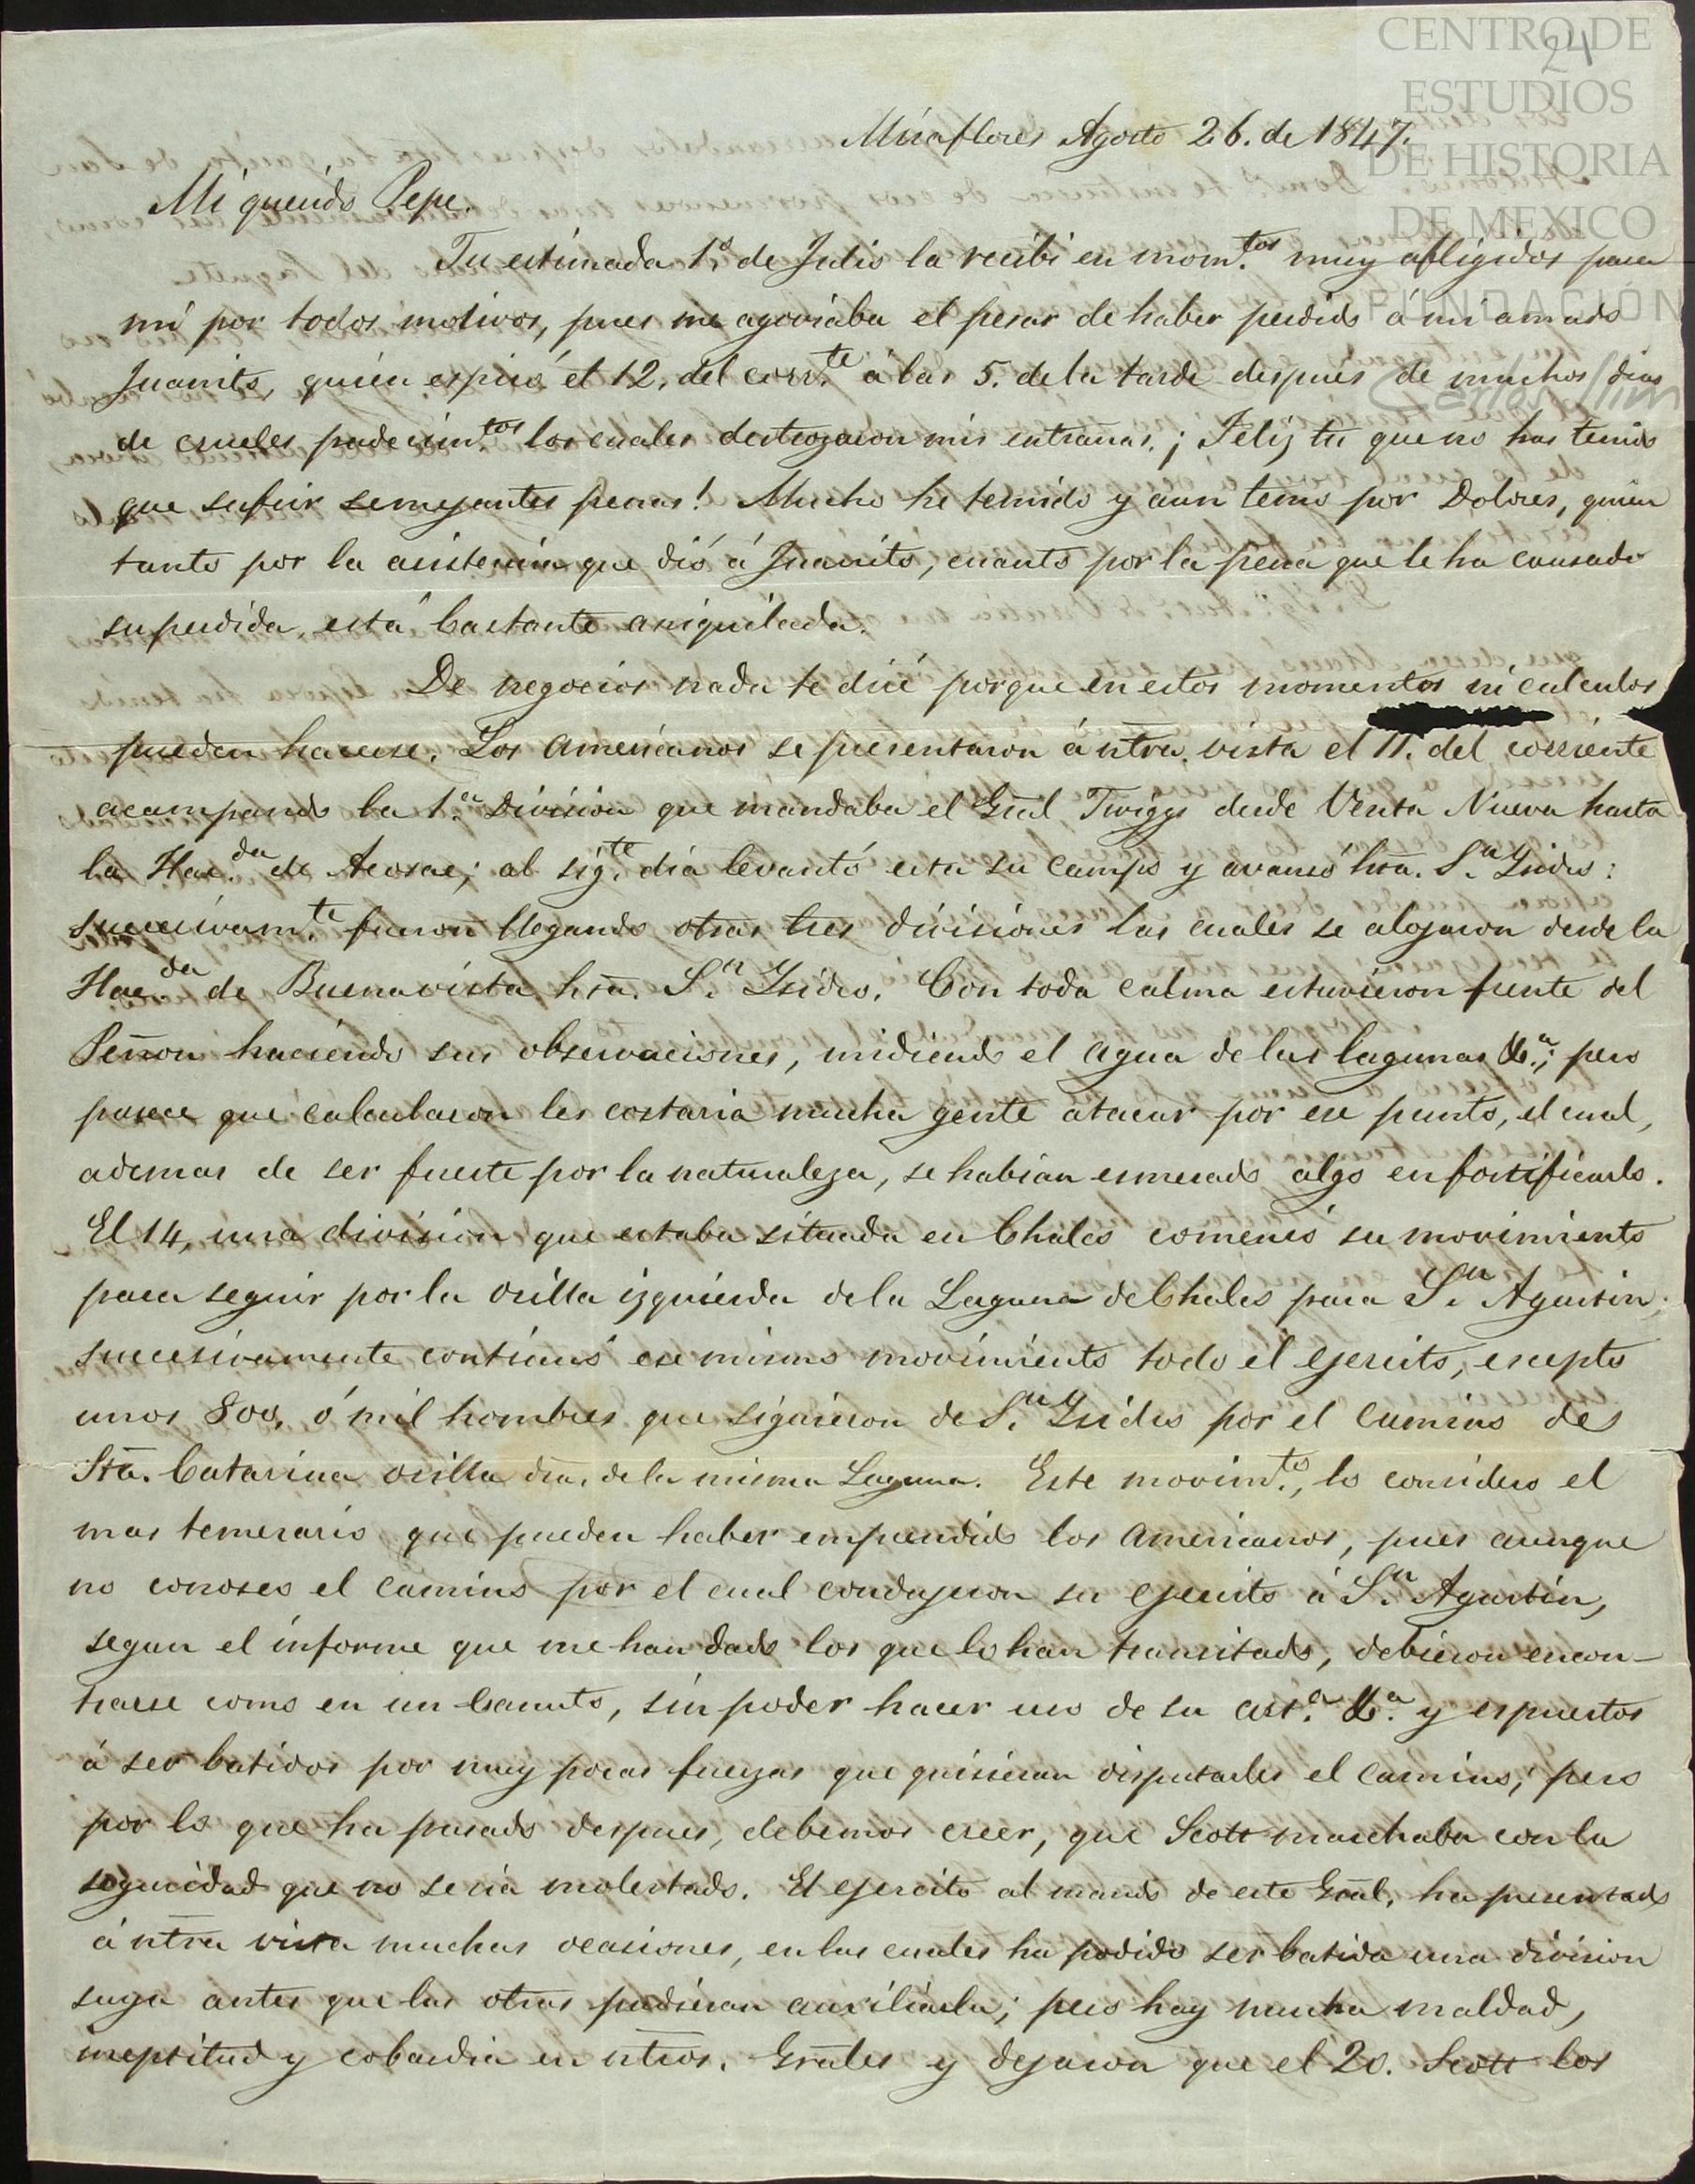 CENTRO DE
ESTUDIOS
DE HISTORIA
DE MEXICO
FUNDACIÓN
Carlos Slim
24
Miraflores Agosto 26. de 1847.
Mi querido Pepe.
Tu estimada 1º de Julio la recibi en mom.tos muy afligidos para
mí por todos motivos, pues me agoviaba el pesar de haber perdido á mi amado
Juanito, quien espiró el 12, del corr.te á las 5. de la tarde despues de muchos dias
de crueles padecim.tos los cuales destrozaron mis entrañas. ¡Feliz tu que no has tenido
que sufrir semejantes penas! Mucho he temido y aun temo por Dolores, quien
tanto por la asistencia que dió á Juanito, cuanto por la pena que le ha causado
su perdida, está bastante aniquilada.
De negocios nada te diré porque en estos momentos ni calculos
pueden hacerse. Los Americanos se presentaron á ntra. vista el 11. del corriente
acampando la 1.a Division que mandaba el Gral Twiggs desde Venta Nueva hasta
la Hac.da de Acosac; al sig.te dia levantó esta su campo y avansó hta. S.n Ysidro:
succesivam.te fueron llegando otras tres divisiones las cuales se alojaron desde la
Hac.da de Buenavista hta. S.n Ysidro. Con toda calma estuvieron frente del
Peñon haciendo sus observaciones, midiendo el agua de las lagunas &.a; pero
parece que calcularon les costaria mucha gente atacar por ese punto, el cual,
ademas de ser fuerte por la naturaleza, se habian esmerado algo en fortificarlo.
El 14, una division que estaba situada en Chalco comensó su movimiento
para seguir por la orilla izquierda de la Laguna de Chalco para S.n Agustin;
succesivamente continuó ese mismo movimiento todo el ejercito, escepto
unos 800, ó mil hombres que siguieron de S.n Ysidro por el camino de
Sta. Catarina orilla dra. de la misma Laguna. Este movim.to, lo considero el
mas temerario que pueden haber emprendido los Americanos, pues aunque
no conosco el camino por el cual condujeron su ejercito á S.n Agustin,
segun el informe que me han dado los que lo han transitado, debieron encon-
trarse como en un canuto, sin poder hacer uso de su art.a &.a y espuestos
á ser batidos por muy pocas fuerzas que quisieran disputarles el camino; pero
por lo que ha pasado despues, debemos creer, que Scott marchaba con la
seguridad que no seria molestado. El ejercito al mando de este Gral, ha presentado
á ntra vista muchas ocasiones, en las cuales ha podido ser batida una division
suya antes que las otras pudieran auxiliarla; pero hay mucha maldad,
ineptitud y cobardia en ntros. Grales y dejaron que el 20. Scott los